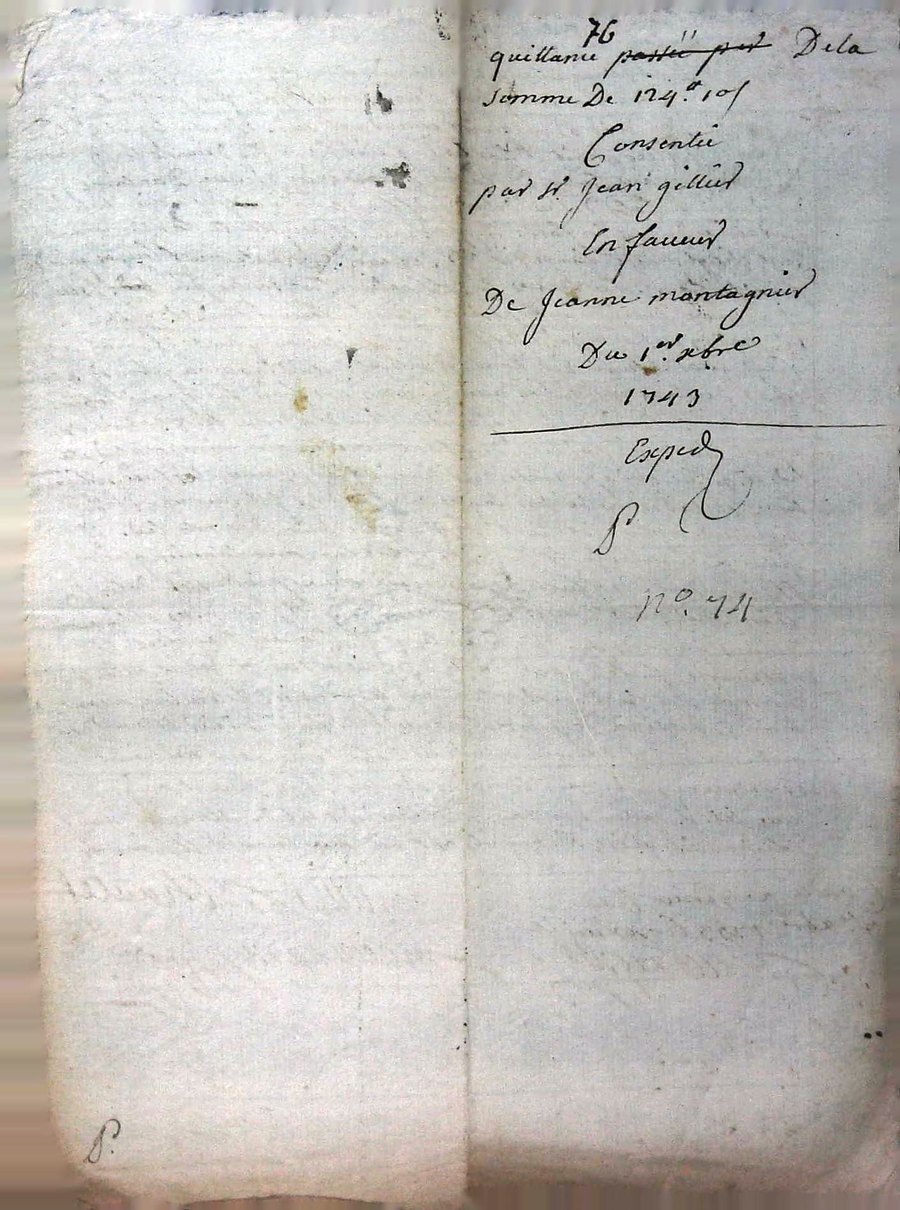 76
quittance passée par De la
somme De 124.tt 10s
Consentie
par Sr. Jean gillier
En faveur
De Jeanne montagnier
Du 1.er xbre
1743
Exped
P
no. 74
P.